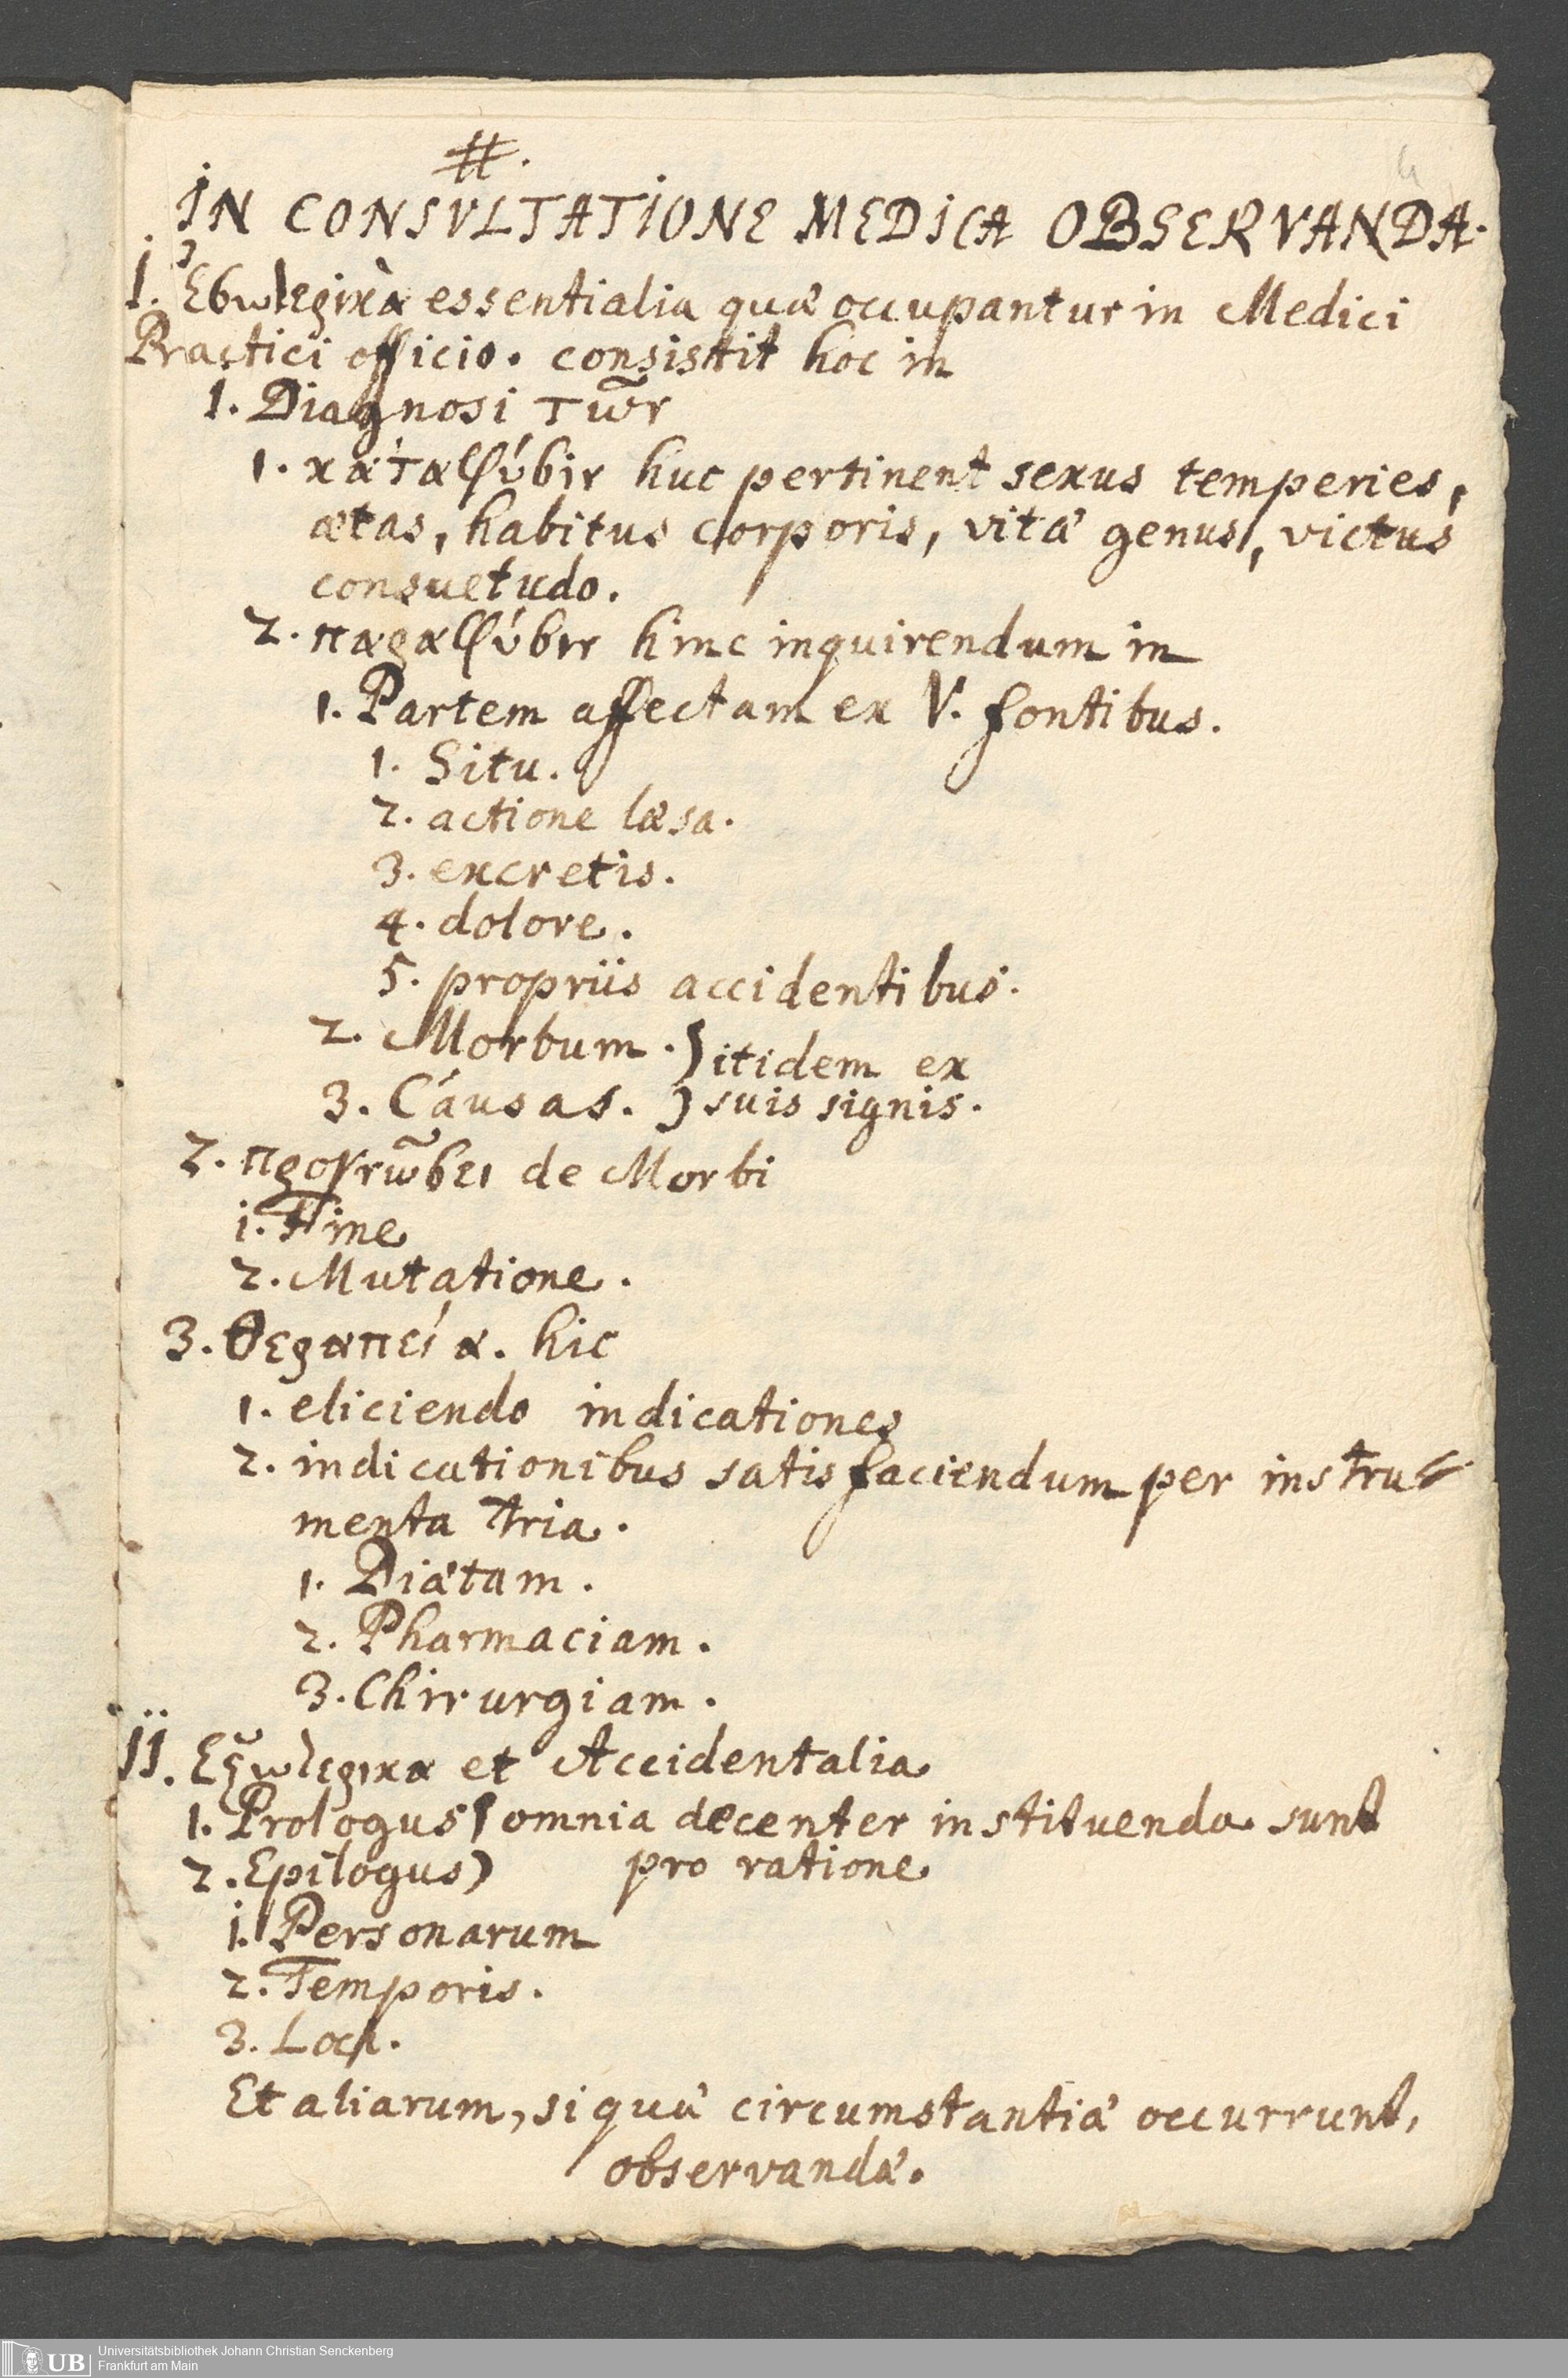 #.
IN CONSVLTATIONE MEDICA OBSERVANDA.
I. Ἐσωτερικὰ essentialia quæ occupantur in Medici
Practici officio. consistit hoc in
1. Diagnosi τῶν
1. κατὰ φύσιν huc pertinent sexus temperies,
ætas, habitus corporis, vitæ genus, victus
consuetudo.
2. παρα φύσιν hinc inquirendum in
1. Partem affectam ex V. fontibus.
1. Situ.
2. actione læsa.
3. excretis.
4. dolore.
5. propriis accidentibus.
2. Morbum. ) itidem ex
3. Causas. ) suis signis.
2. προγνῶσει de Morbi
1. Fine
2. Mutatione.
3. Θεραπεία. hic
1. eliciendo indicationes
2. indicationibus satisfaciendum per instru-
menta Tria.
1. Diætam.
2. Pharmaciam.
3. Chirurgiam.
II. Εξωτερικα et Accidentalia
1. Prologus ) omnia decenter instituenda sunt
2. Epilogus ) pro ratione
1. Personarum
2. Temporis.
3. Loci.
Et aliarum, si quæ circumstantiæ occurrunt,
observandæ.
UB Universitätsbibliothek Johann Christian Senckenberg
Frankfurt am Main